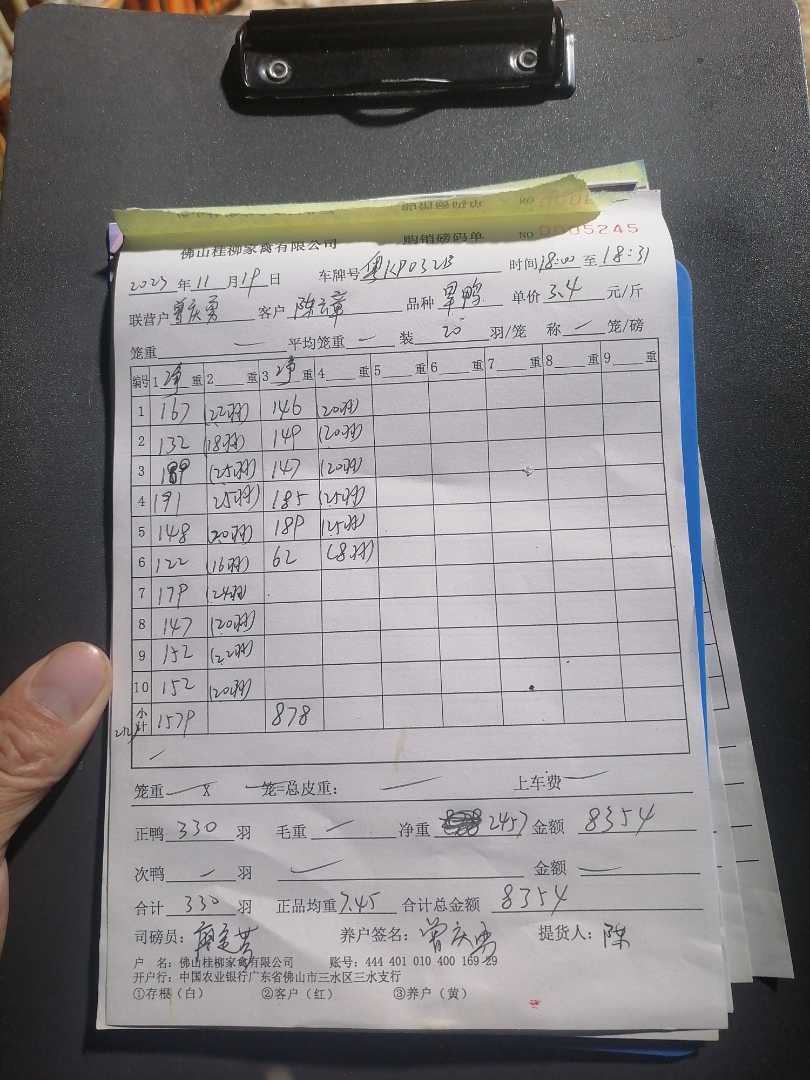 佛山桂柳家禽有限公司 购销磅码单 NO 0005245
2023年11月19日 车牌号粤KP032B 时间18:00至18:31
联营户曾庆勇 客户陈云章 品种 单价3.4元/斤
笼重 — 平均笼重 — 装 20 羽/笼 称 — 笼/磅
编号 1净重 2 重 3净重 4 重 5 重 6 重 7 重 8 重 9 重
1 167 (22羽) 146 (20羽)
2 132 (18羽) 149 (20羽)
3 189 (25羽) 147 (20羽)
4 191 (25羽) 185 (25羽)
5 148 (20羽) 189 (25羽)
6 122 (16羽) 62 (8羽)
7 179 (24羽)
8 147 (20羽)
9 152 (22羽)
10 152 (20羽)
小计 1579 878
笼重 — X — 笼=总皮重: — 上车费 —
正鸭 330 羽 毛重 — 净重 2457 金额 8354
次鸭 — 羽 — 金额 —
合计 330 羽 正品均重7.45 合计总金额 8354
司磅员: 养户签名: 曾庆勇 提货人: 陈
户 名: 佛山桂柳家禽有限公司 账号: 444 401 010 400 169 29
开户行: 中国农业银行广东省佛山市三水区三水支行
①存根(白) ②客户(红) ③养户(黄)